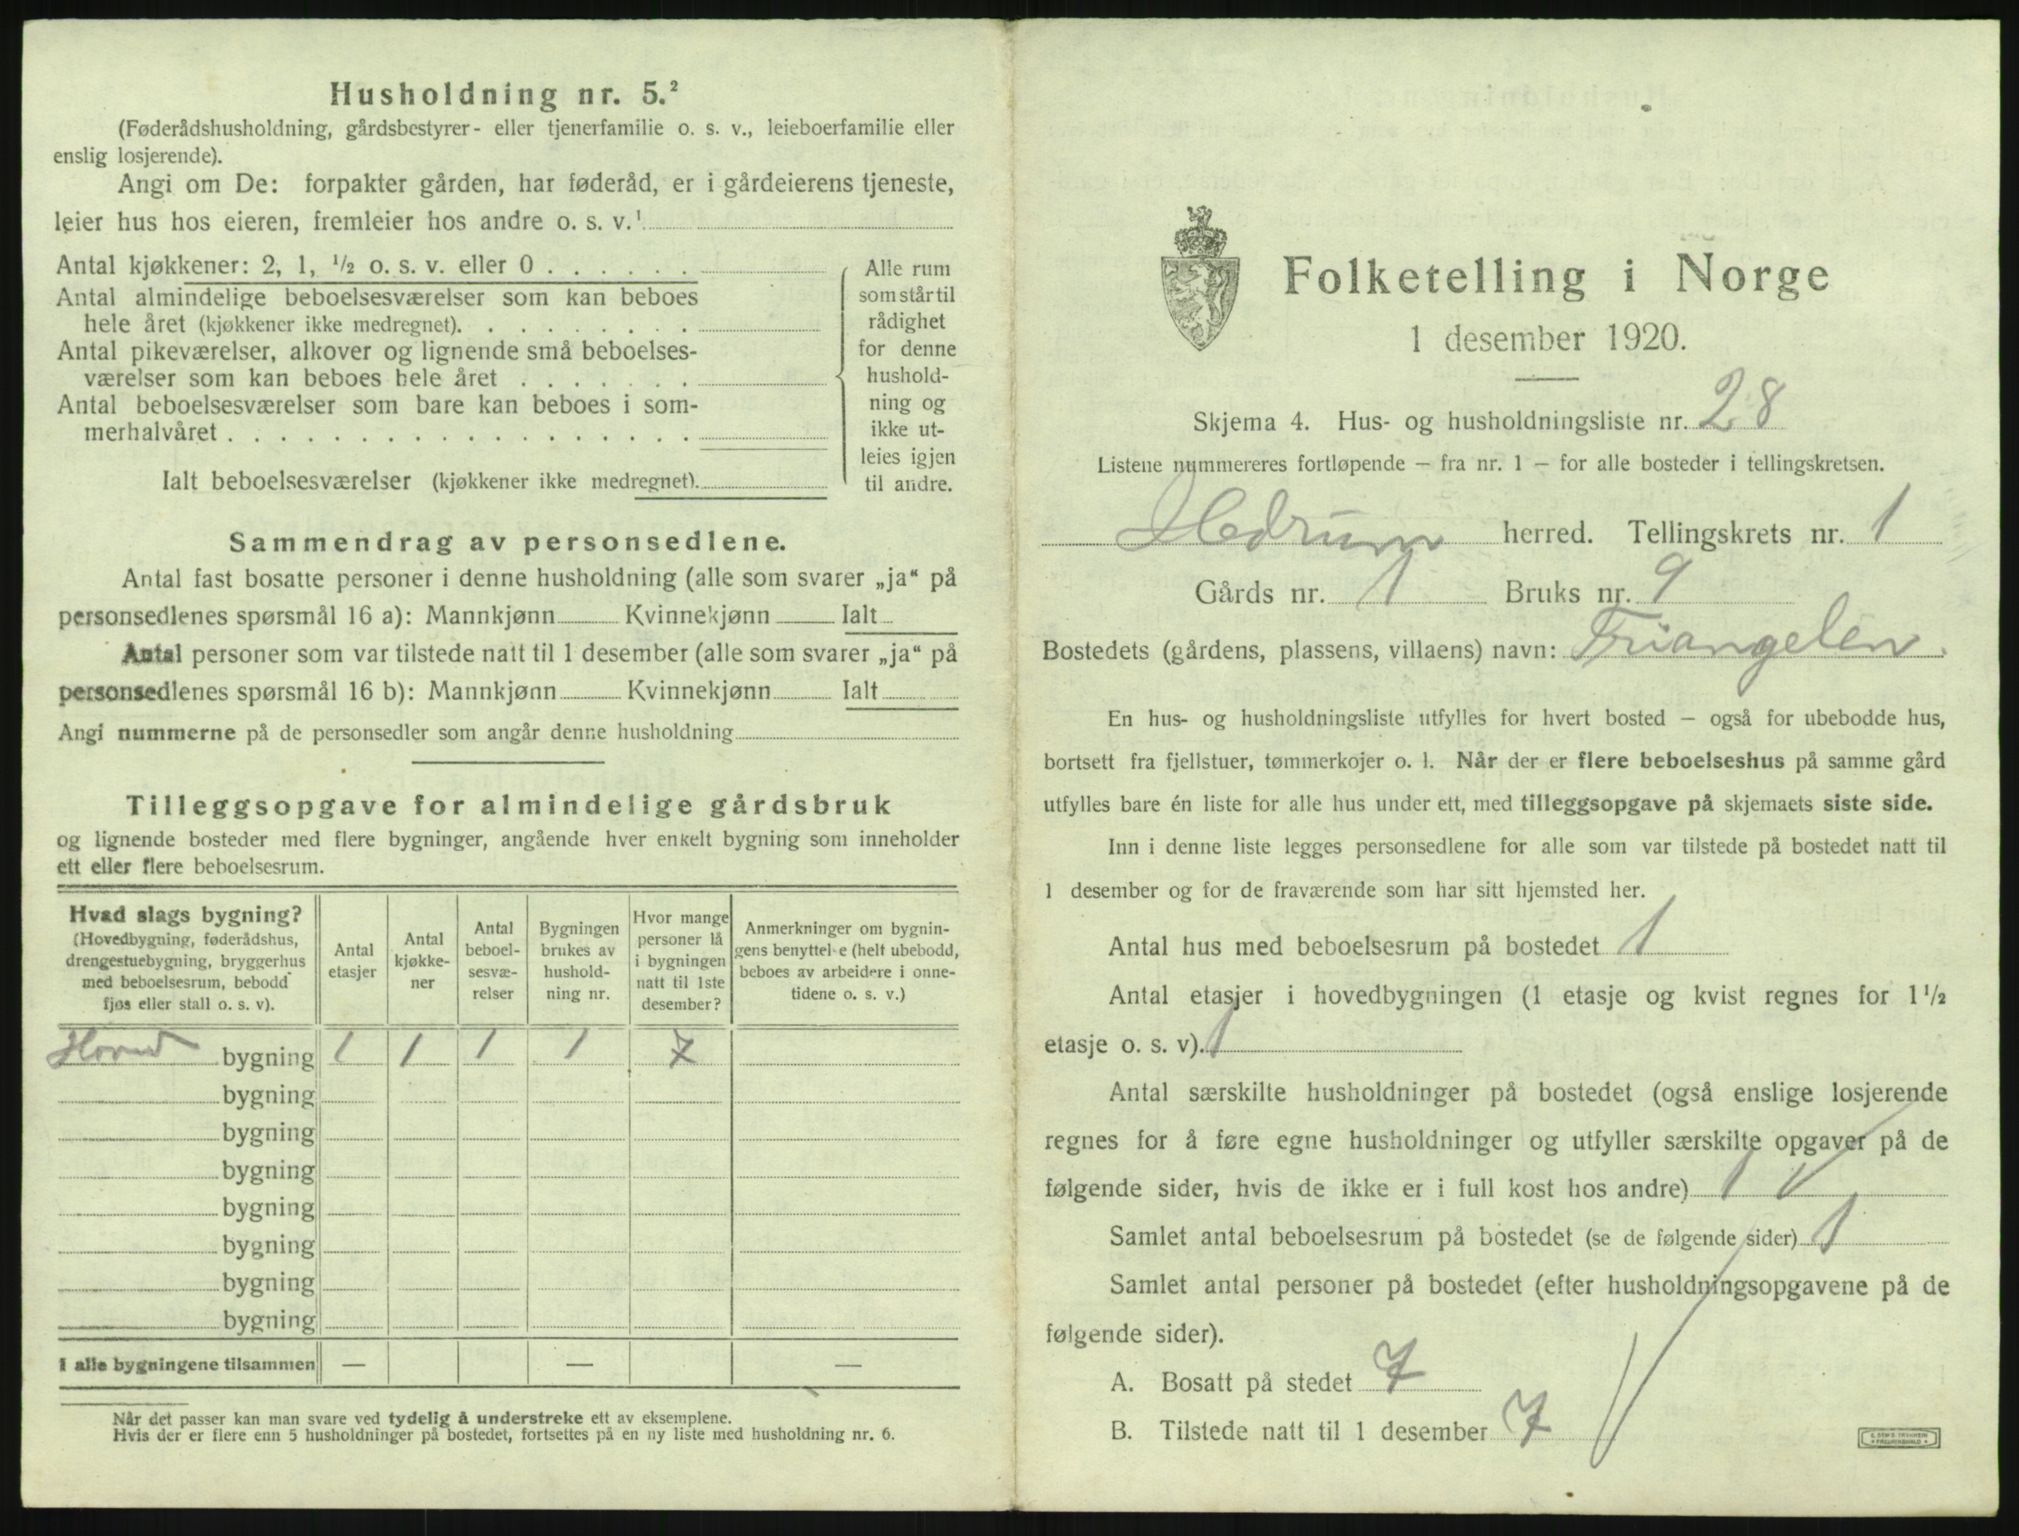 Husholdning nr. 5.²
(Føderådshusholdning, gårdsbestyrer- eller tjenerfamilie o. s. v., leieboerfamilie eller
enslig losjerende).
Angi om De: forpakter gården, har føderåd, er i gårdeierens tjeneste,
leier hus hos eieren, fremleier hos andre o. s. v.¹
Antal kjøkkener: 2, 1, ½ o. s. v. eller 0 . . . . . .
Antal almindelige beboelsesværelser som kan beboes
hele året (kjøkkener ikke medregnet). . . . . . . . .
Antal pikeværelser, alkover og lignende små beboelses-
værelser som kan beboes hele året . . . . . . .
Antal beboelsesværelser som bare kan beboes i som-
merhalvåret . . . . . . . . . . . . . . . . .
Ialt beboelsesværelser (kjøkkener ikke medregnet).
Alle rum
som står til
rådighet
for denne
hushold-
ning og
ikke ut-
leies igjen
til andre.
Sammendrag av personsedlene.
Antal fast bosatte personer i denne husholdning (alle som svarer „ja“ på
personsedlenes spørsmål 16 a): Mannkjønn Kvinnekjønn Ialt
Antal personer som var tilstede natt til 1 desember (alle som svarer „ja“ på
personsedlenes spørsmål 16 b): Mannkjønn Kvinnekjønn Ialt
Angi nummerne på de personsedler som angår denne husholdning
Tilleggsopgave for almindelige gårdsbruk
og lignende bosteder med flere bygninger, angående hver enkelt bygning som inneholder
ett eller flere beboelsesrum.
Hvad slags bygning?
(Hovedbygning, føderådshus,
drengestuebygning, bryggerhus
med beboelsesrum, bebodd
fjøs eller stall o. s. v).
Antal
etasjer
Antal
kjøkke-
ner
Antal
beboel-
sesvæ-
relser
Bygningen
brukes av
hushold-
ning nr.
Hvor mange
personer lå
i bygningen
natt til 1ste
desember?
Anmerkninger om bygnin-
gens benyttelse (helt ubebodd,
beboes av arbeidere i onne-
tidene o. s. v.)
Hoved bygning 1 1 1 1 7
bygning
bygning
bygning
bygning
bygning
bygning
bygning
I alle bygningene tilsammen — — —
Når det passer kan man svare ved tydelig å understreke ett av eksemplene.
Hvis der er flere enn 5 husholdninger på bostedet, fortsettes på en ny liste med husholdning nr. 6.
Folketelling i Norge
1 desember 1920.
Skjema 4. Hus- og husholdningsliste nr. 28
Listene nummereres fortløpende – fra nr. 1 – for alle bosteder i tellingskretsen.
Hedrum herred. Tellingskrets nr. 1
Gårds nr. 1 Bruks nr. 9
Bostedets (gårdens, plassens, villaens) navn: Triangelen.
En hus- og husholdningsliste utfylles for hvert bosted – også for ubebodde hus,
bortsett fra fjellstuer, tømmerkojer o. l. Når der er flere beboelseshus på samme gård
utfylles bare én liste for alle hus under ett, med tilleggsopgave på skjemaets siste side.
Inn i denne liste legges personsedlene for alle som var tilstede på bostedet natt til
1 desember og for de fraværende som har sitt hjemsted her.
Antal hus med beboelsesrum på bostedet 1
Antal etasjer i hovedbygningen (1 etasje og kvist regnes for 1½
etasje o. s. v). 1
Antal særskilte husholdninger på bostedet (også enslige losjerende
regnes for å føre egne husholdninger og utfyller særskilte opgaver på de
følgende sider, hvis de ikke er i full kost hos andre) 1
Samlet antal beboelsesrum på bostedet (se de følgende sider) 1
Samlet antal personer på bostedet (efter husholdningsopgavene på de
følgende sider).
A. Bosatt på stedet 7
B. Tilstede natt til 1 desember 7